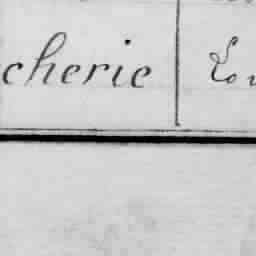 cherie Lou